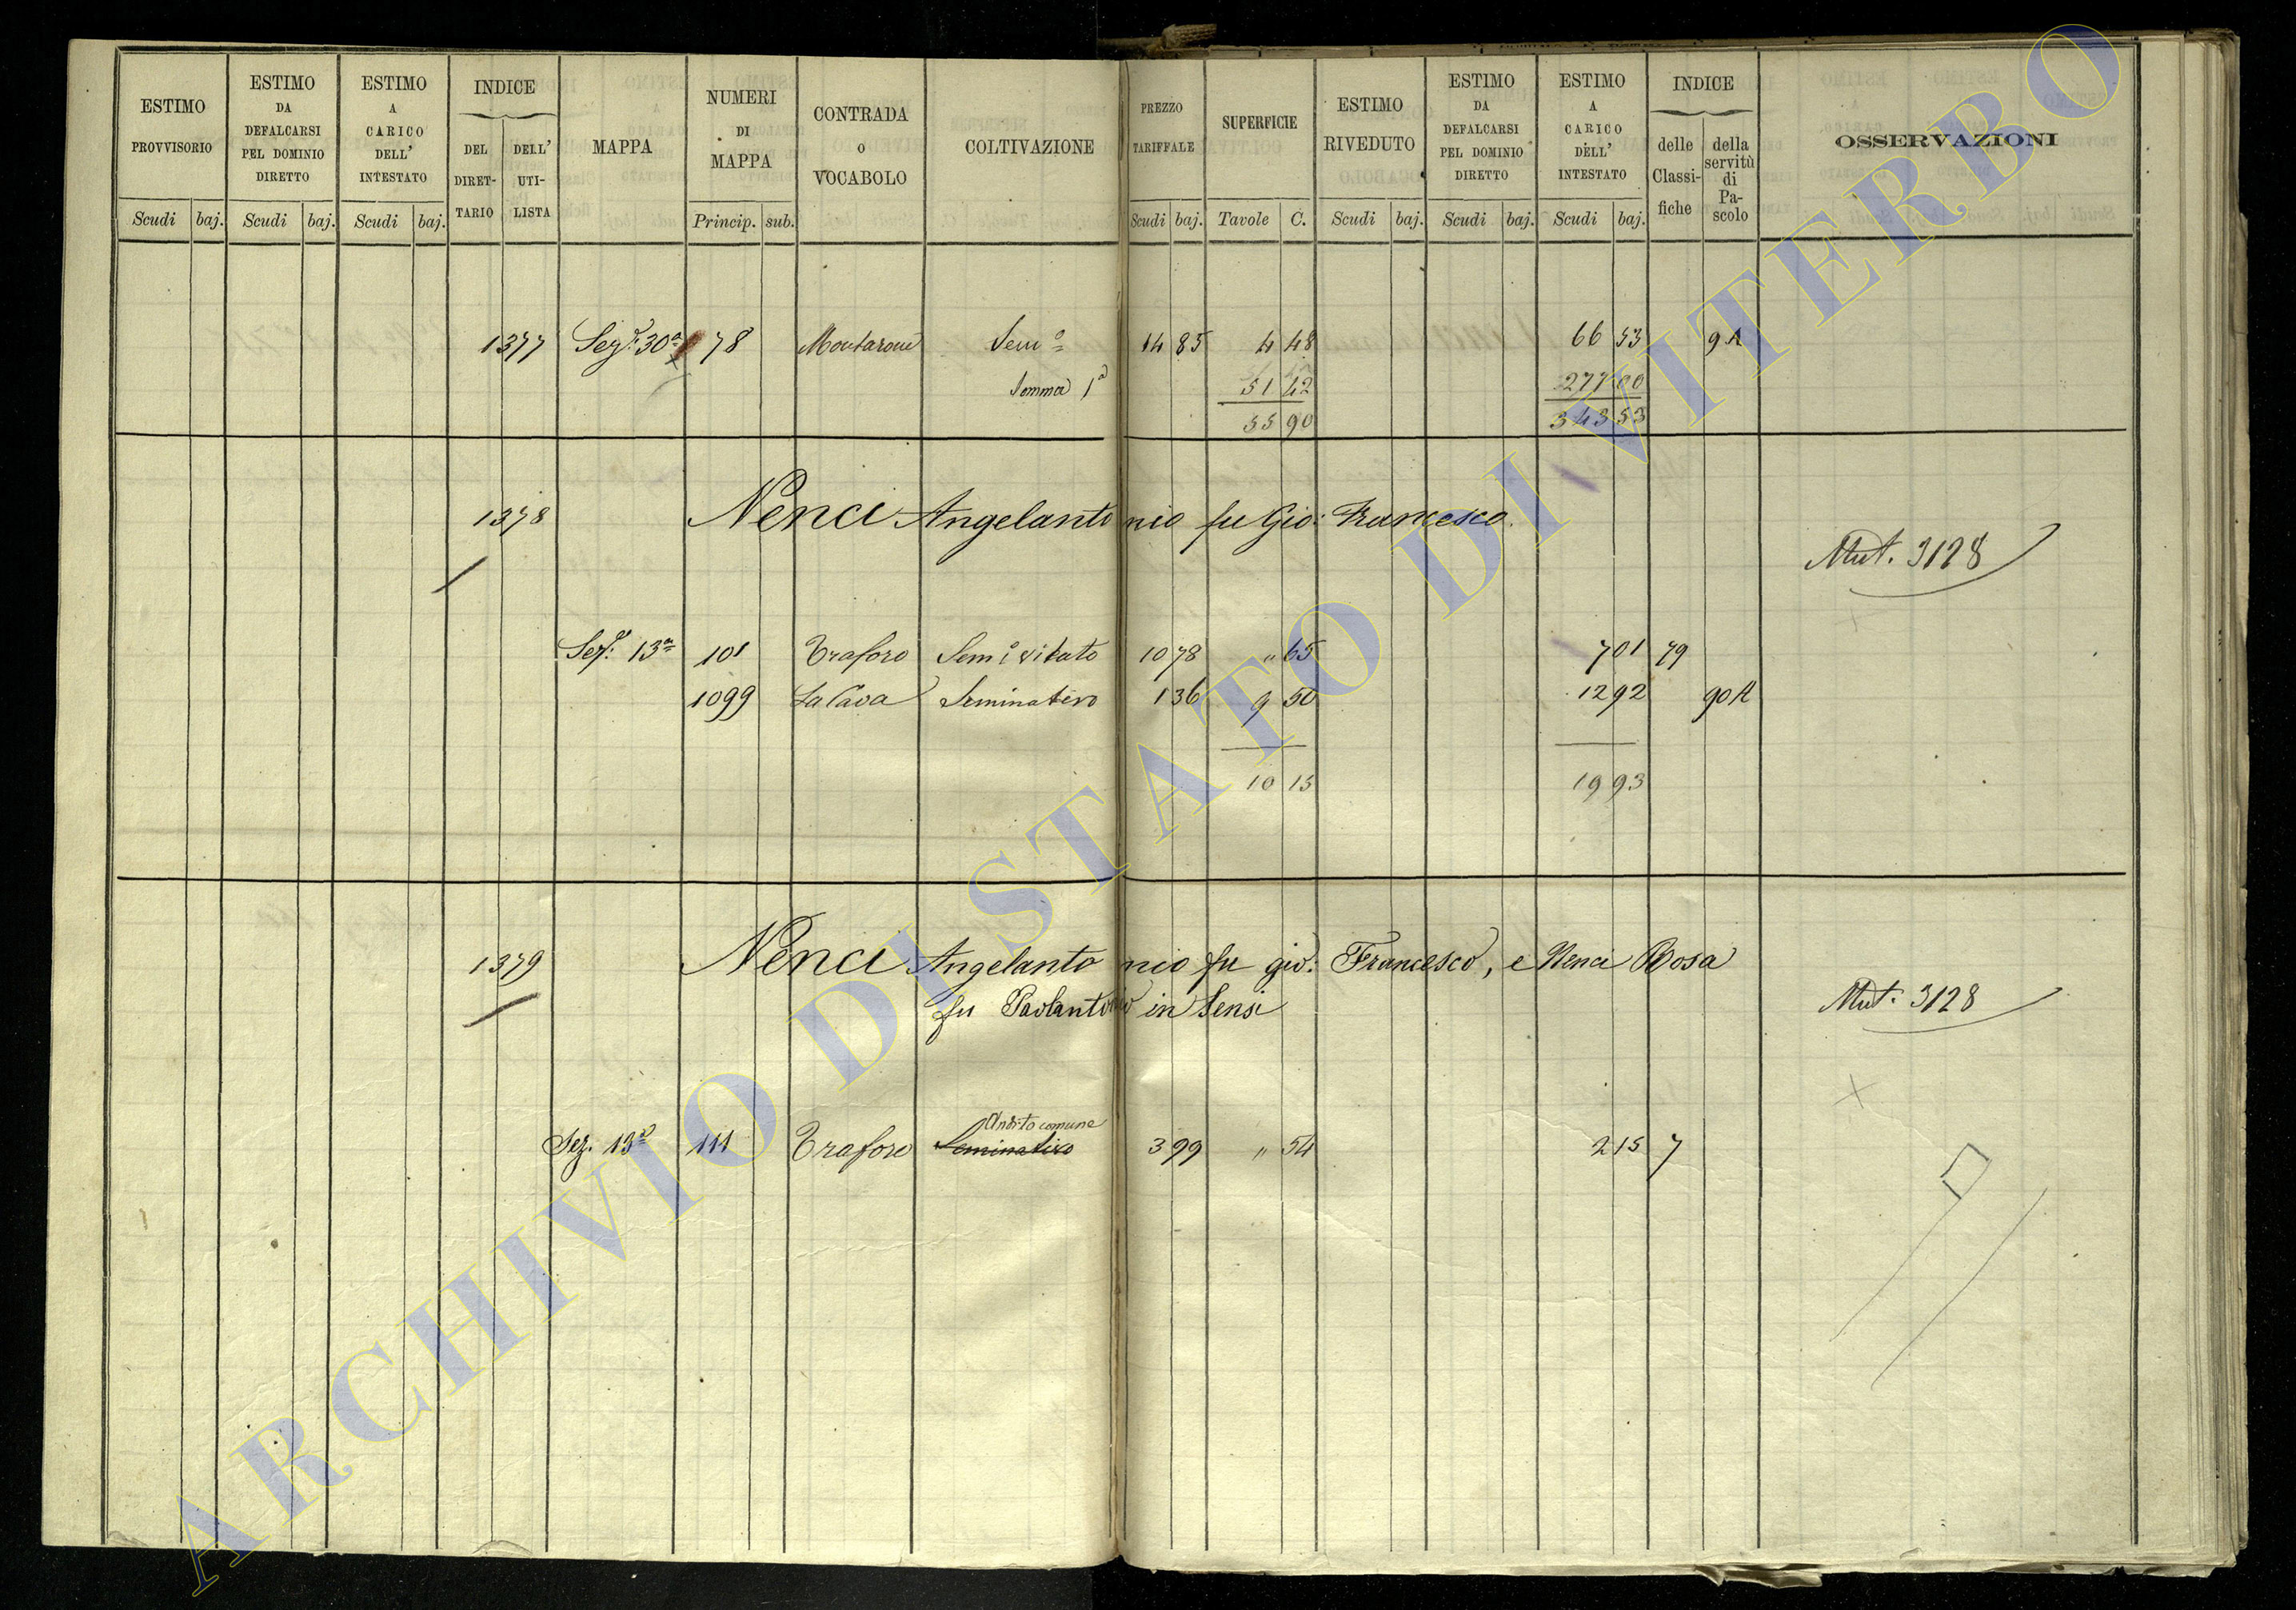 ESTIMO PROVVISORIO Scudi baj.
ESTIMO DA DEFALCARSI PEL DOMINIO DIRETTO Scudi baj.
ESTIMO A CARICO DELL' INTESTATO Scudi baj.
INDICE DEL DIRET-TARIO DELL' UTI-LISTA
MAPPA
NUMERI DI MAPPA Princip. sub.
CONTRADA O VOCABOLO
COLTIVAZIONE
PREZZO TARIFFALE Scudi baj.
SUPERFICIE Tavole C.
ESTIMO RIVEDUTO Scudi baj.
ESTIMO DA DEFALCARSI PEL DOMINIO DIRETTO Scudi baj.
ESTIMO A CARICO DELL' INTESTATO Scudi baj.
INDICE delle Classi-fiche della servitù di Pa-scolo
OSSERVAZIONI
1377 Sez. 30a 78 Montarone Sem.o 14 85 4 48 66 53 9 A
Somma 1a 51 42 277 00
55 90 343 53
1378 Nenci Angelantonio fu Gio: Francesco.
Mut. 3128
Sez. 13a 101 Traforo Sem.o vitato 10 78 " 65 7 01 79
1099 La Cava Seminativo 1 36 9 50 12 92 90 A
10 15 19 93
1379 Nenci Angelantonio fu gio: Francesco, e Nenci Rosa
fu Paolantonio in Sensi
Mut. 3128
Andito comune
Sez. 13a 111 Traforo Seminativo 3 99 " 54 2 15 7
ARCHIVIO DI STATO DI VITERBO